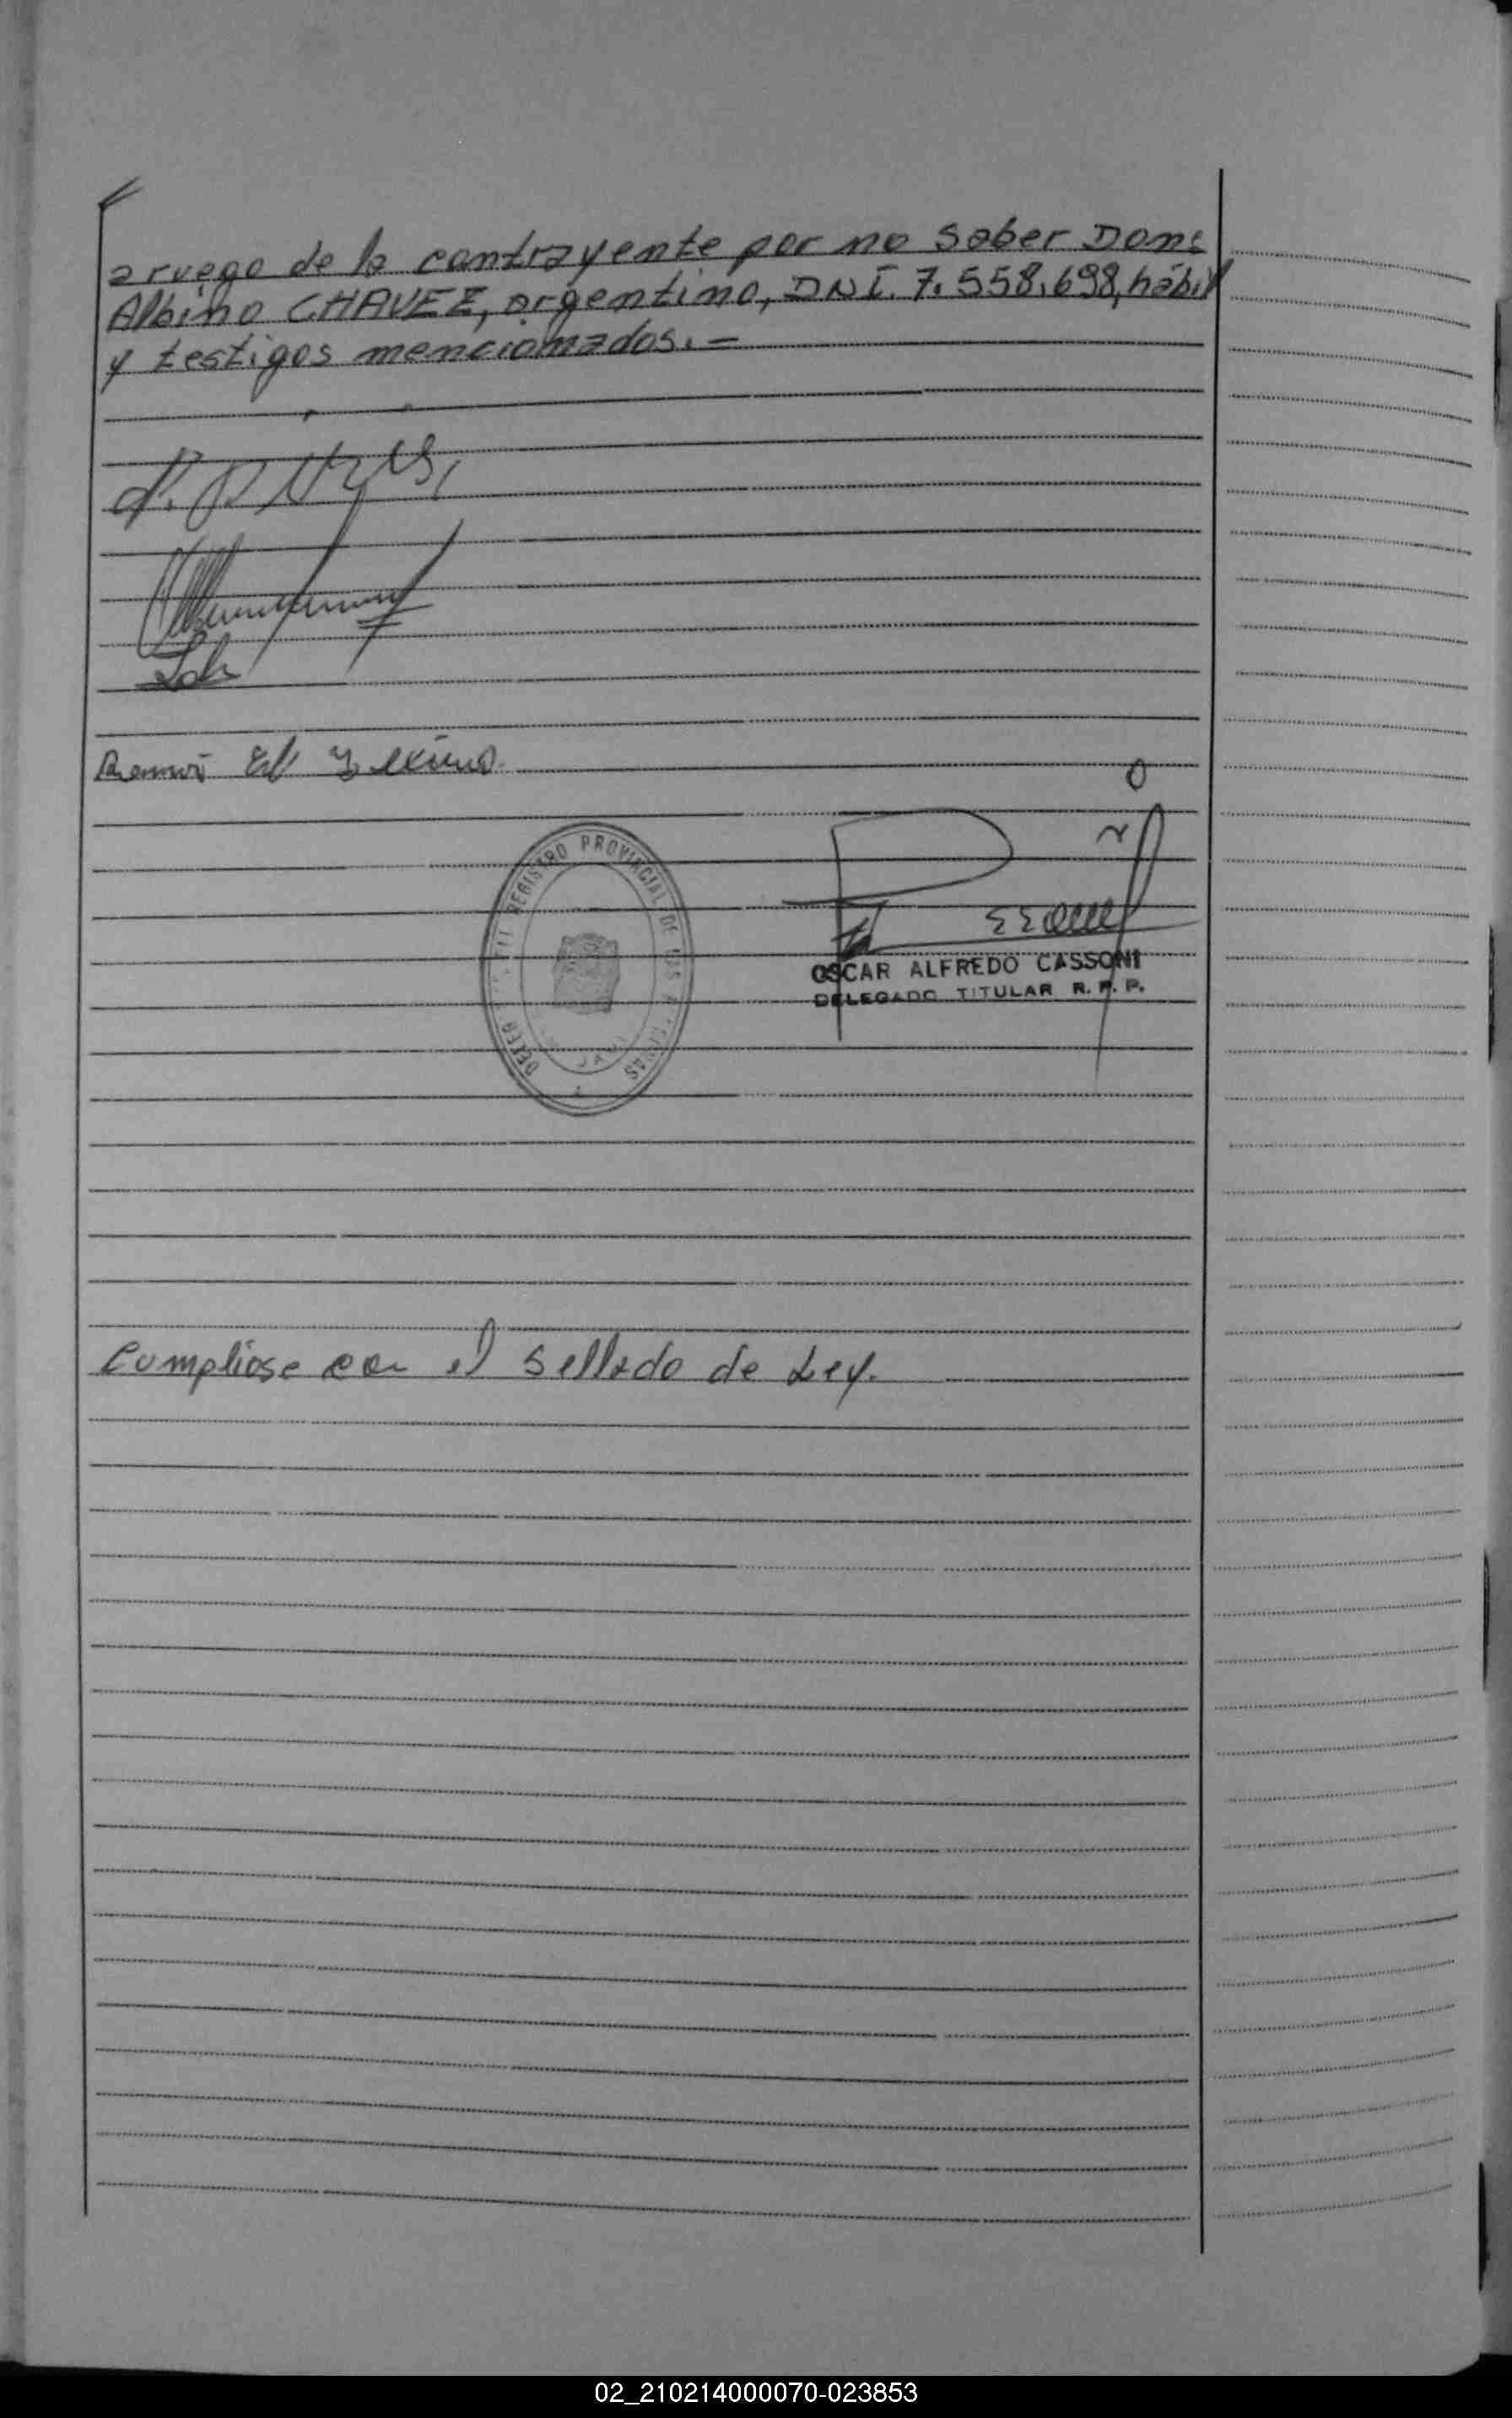 a ruego de la contrayente por no saber Don:
Albino CHAVEZ, argentino, DNI. 7.558.698, hábil
y testigos mencionados. =
REGISTRO PROVINCIAL DE LAS PERSONAS
OSCAR ALFREDO CASSONI
DELEGADO TITULAR R. P. P.
Cumpliose con el sellado de Ley.
02_210214000070-023853